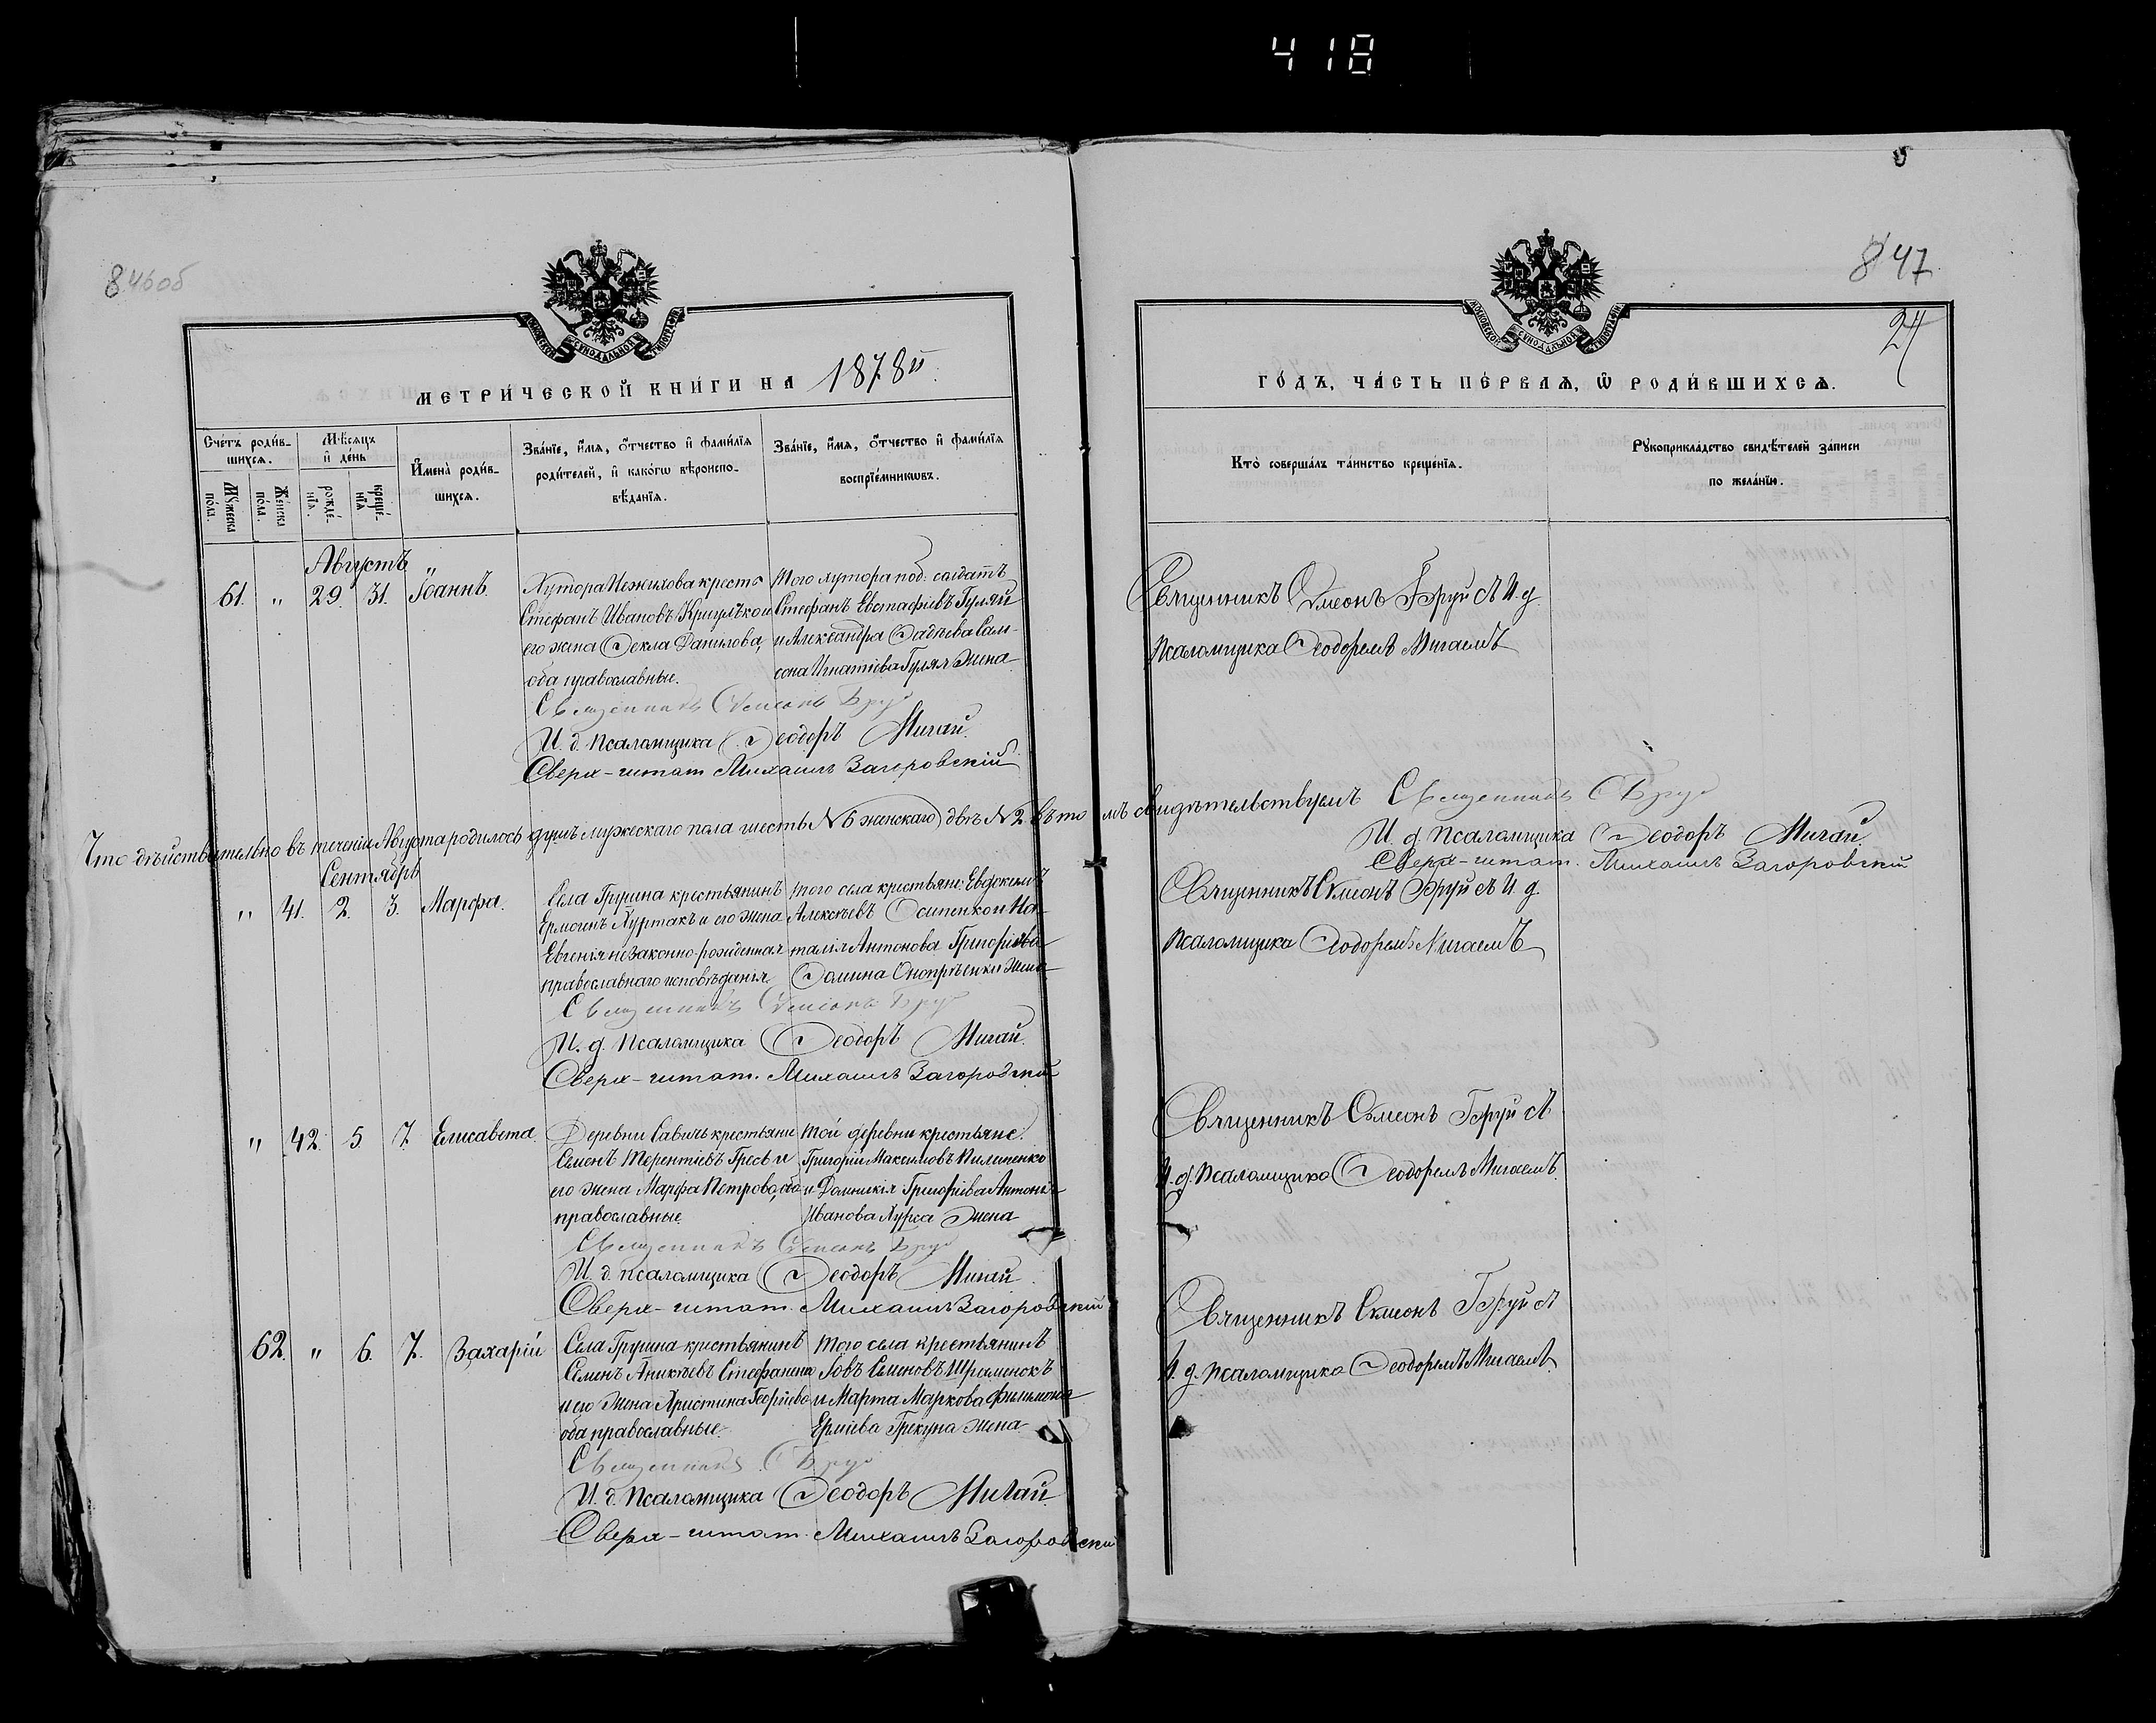 418
846об
847
24
МОСКОВСКОЙ СѴНОДАЛЬНОЙ ТИПОГРАФІИ
МОСКОВСКОЙ СѴНОДАЛЬНОЙ ТИПОГРАФІИ
МЕТРИ́ЧЕСКОЙ КНИ́ГИ НА 1878й
ГО́ДЪ, ЧА́СТЬ ПЕ́РВАѦ, Ѿ РОДИ́ВШИХСѦ.
Сче́тъ роди́вшихсѧ.
Му́жеска по́ла.
Же́нска по́ла.
Мѣ́сяцъ и҆ де́нь
рожде́нїѧ.
креще́нїѧ
И҆мена̀ роди́вшихсѧ.
Зва́нїе, и҆́мѧ, ѻ҆́тчество и҆ фами́лїѧ
роди́телей, и҆ како́гѡ вѣроиспо-
вѣ́данїѧ.
Зва́нїе, и҆́мѧ, ѻ҆́тчество и҆ фами́лїѧ
воспрїе́мникѡвъ.
Кто̀ соверша́лъ та́инство креще́нїѧ.
Рꙋкоприкла́дство свидѣ́телей за́писи
по жела́нїю.
Августъ
61. " 29. 31. Іоаннъ.
Хутора
Стефанъ Ивановъ и
его жена Ѳекла Данилова,
оба православные.
Того хутора под: солдатъ
Стефанъ Евстафіевъ Гуляй
и Александра Ѳадѣева Сам-
сона Игнатіева Гуляя жена
Священникъ Сѵмеонъ Бруй съ И. д.
псаломщика Ѳеодоромъ Мигаемъ
Священникъ Сѵмеонъ Бруй
И. д. псаломщика Ѳеодоръ Мигай.
Сверх-штат Михаилъ Загоровскій
Что дѣйствительно въ теченіи Августа родилось душъ мужескаго пола шесть № 6 женскаго двѣ № 2 въ томъ свидѣтельствуемъ Священникъ С Бруй
И. д. псаломщика Ѳеодоръ Мигай.
Сверх-штат. Михаилъ Загоровскій
Сентябрь
" 41. 2. 3. Марфа.
Села Грушна крестьянинъ
Ермогенъ и его жена
Евгенія незаконно-рожденная
православнаго исповѣданія.
того села крестьяне: Евдокимъ
Алексѣевъ Осипенко и На-
талія Антонова Григоріева
жена
Священникъ Сѵмеонъ Бруй съ И. д.
псаломщика Ѳеодоромъ Мигаемъ
Священникъ Сѵмеонъ Бруй
И. д. псаломщика Ѳеодоръ Мигай.
Сверх-штат. Михаилъ Загоровскій
" 42. 5 7. Елисавета.
Деревни Савичъ крестьяне
Семенъ Терентіевъ и
его жена Марфа Петрова, оба
православные.
той деревни крестьяне:
Григорій Максимовъ Пилипенко
и Домникія Григоріева Антона
Иванова жена
Священникъ Сѵмеонъ Бруй съ
И. д. псаломщика Ѳеодоромъ Мигаемъ.
Священникъ Сѵмеонъ Бруй
И. д. псаломщика Ѳеодоръ Мигай.
Сверх-штат. Михаилъ Загоровскій
62. " 6. 7. Захарій
Села Грушна крестьянинъ
Семенъ Аникѣевъ
и его жена Христина Георгіева
оба православные.
того села крестьянинъ
Іовъ Семеновъ
и Марта Маркова Филимона
жена
Священникъ Сѵмеонъ Бруй съ
И. д. псаломщика Ѳеодоромъ Мигаемъ
Священникъ С Бруй
И. д. псаломщика Ѳеодоръ Мигай
Сверх-штат. Михаилъ Загоровскій